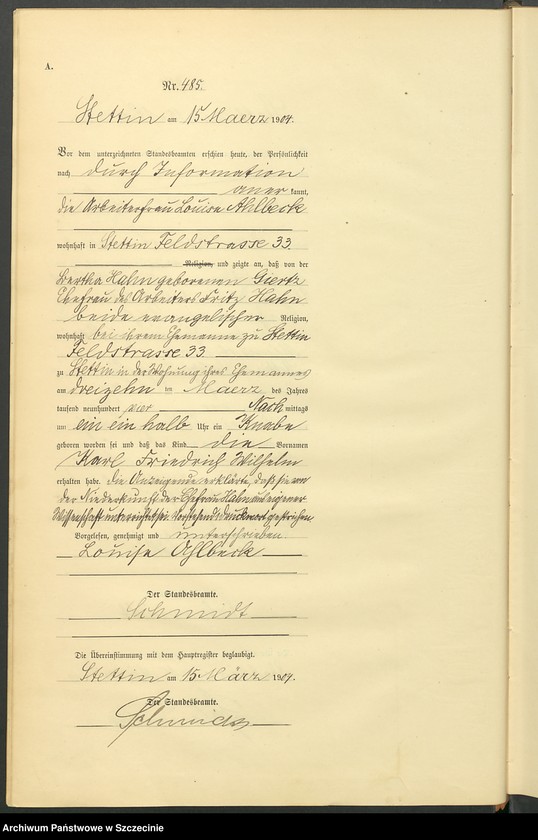 A.
Nr. 485.
Stettin am 15 Maerz 1904.
Vor dem unterzeichneten Standesbeamten erschien heute, der Persönlichkeit
nach durch Information
aner kannt,
die Arbeiterfrau Louise Ahlbeck
wohnhaft in Stettin Feldstrasse 33.
Religion, und zeigte an, daß von der
Bertha Hahn geborenen Giertz
Ehefrau des Arbeiters Fritz Hahn
beide evangelischer Religion,
wohnhaft bei ihrem Ehemanne zu Stettin
Feldstrasse 33.
zu Stettin in der Wohnung ihres Ehemannes
am dreizehn ten Maerz des Jahres
tausend neunhundert vier Nach mittags
um ein ein halb Uhr ein Knabe
geboren worden sei und daß das Kind die Vornamen
Karl Friedrich Wilhelm
erhalten habe. Die Anzeigende erklärte, dass sie von
der Niederkunft der Ehefrau Hahn aus eigener
Wissenschaft unterrichtet sei. Vorstehend Druckwort gestrichen
Vorgelesen, genehmigt und unterschrieben
Louise Ahlbeck
Der Standesbeamte.
Schmidt
Die Übereinstimmung mit dem Hauptregister beglaubigt.
Stettin am 15 März 1904.
Der Standesbeamte.
Archiwum Państwowe w Szczecinie